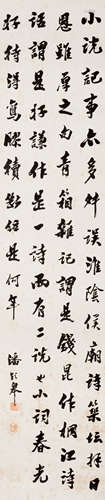 小說記事亦多舛誤淮陰侯廟詩築坛拜日
恩雖厚之句青箱雜記謂是錢昆作桐江詩
話謂是好謙作是一詩而有二說也小詞春光
好待得鸞膠續斷弦是何年 潘齡皋